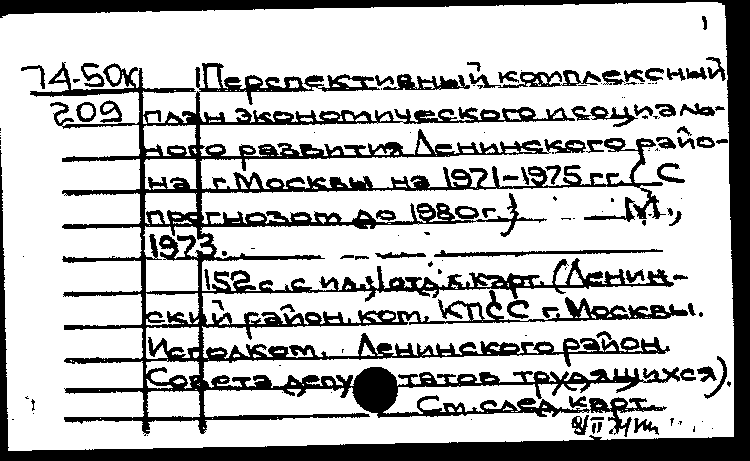 1
74-50к Перспективный комплексный
209 план экономического и социаль-
ного развития Ленинского райо-
на г. Москвы на 1971-1975 гг. (С
прогнозом до 1980 г.) М.,
1973.
152 с. с ил.; 1 отд. л. карт. (Ленин-
ский район. ком. КПСС г. Москвы.
Исполком. Ленинского район.
Совета депутатов трудящихся).
См. след. карт.